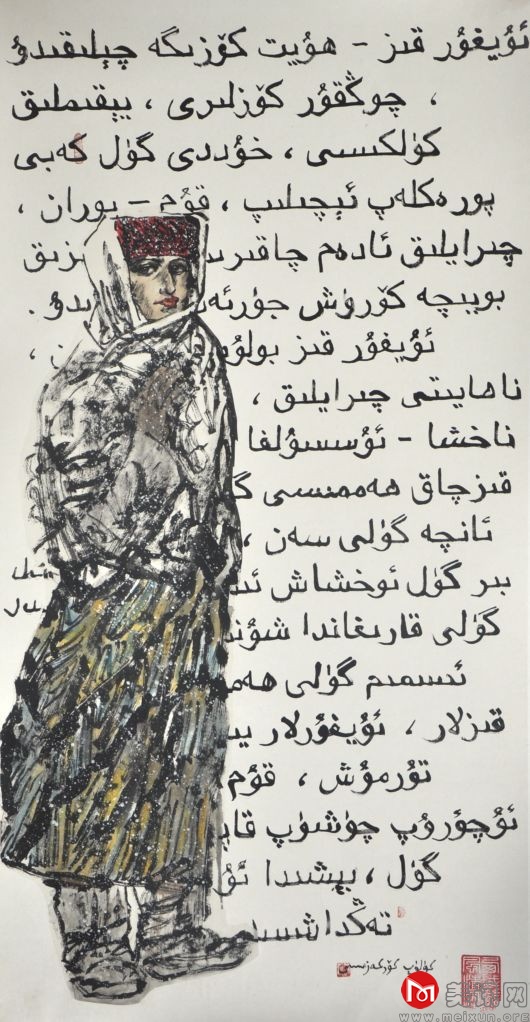 ئۇيغۇر قىز - ھۇيت كۆزىگە چېلىقىدۇ
، چوڭقۇر كۆزلىرى ، يېقىملىق
كۈلكىسى ، خۇددى گۈل كەبى
پورەكلەپ ئېچىلىپ ، قۇم - بوران ،
چىرايلىق ئادەم چاقىر
بويىچە كۆرۈش جۈرئە
ئۇيغۇر قىز بولۇ
ناھايىتى چىرايلىق ،
ناخشا - ئۇسسۇلغا
قىزچاق ھەممىسى گ
ئانچە گۈلى سەن ،
بىر گۈل ئوخشاش ئى
گۈلى قارىغاندا شۇن
ئىسمىم گۈلى ھەم
قىزلار ، ئۇيغۇرلار ي
تۇرمۇش ، قۇم
ئۇچۇرۇپ چۈشۈپ قاپ
گۈل ، يېشىدا ئۇ
تەڭداشسى
美讯网
www.meixun.org